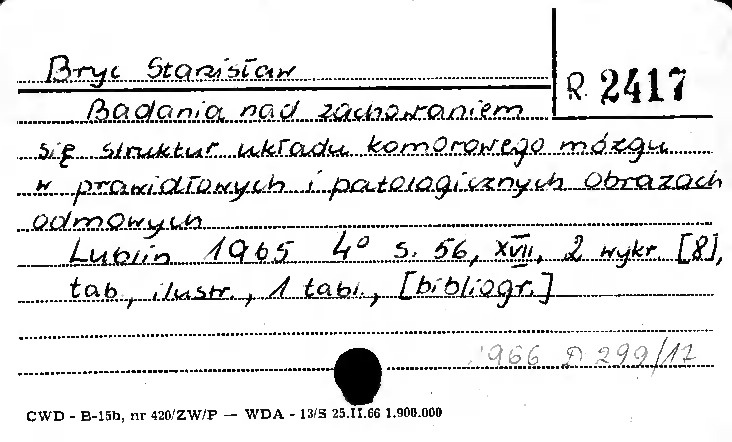 Bryc Stanisław
R. 2417
Badania nad zachowaniem
się struktur układu komorowego mózgu
w prawidłowych i patologicznych obrazach
odmowych
Lublin 1965 4° s. 56, XVII, 2 wykr. [8],
tab., ilustr., 1 tabl., [bibliogr.]
1966 D 299/12
CWD - B-15b, nr 420/ZW/P — WDA - 13/S 25.II.66 1.900.000